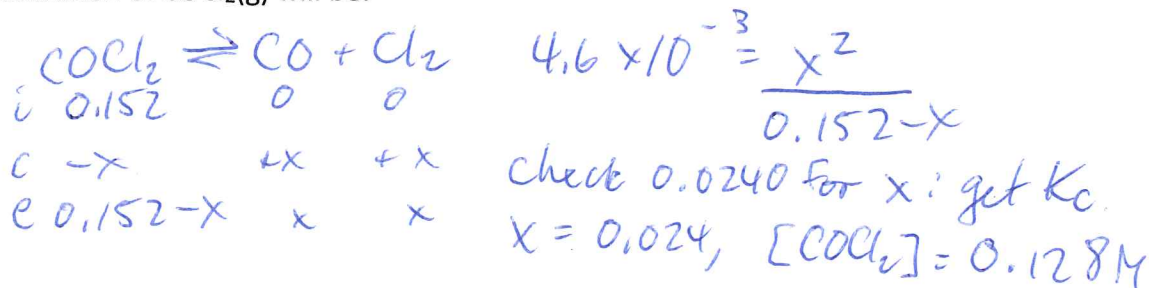 COCl₂ ⇌ CO + Cl₂
i 0.152 0 0
c -x +x +x
e 0.152-x x x
4.6 x10⁻³ = x² / 0.152-x
check 0.0240 for x: get Kc.
x = 0.024, [COCl₂] = 0.128M